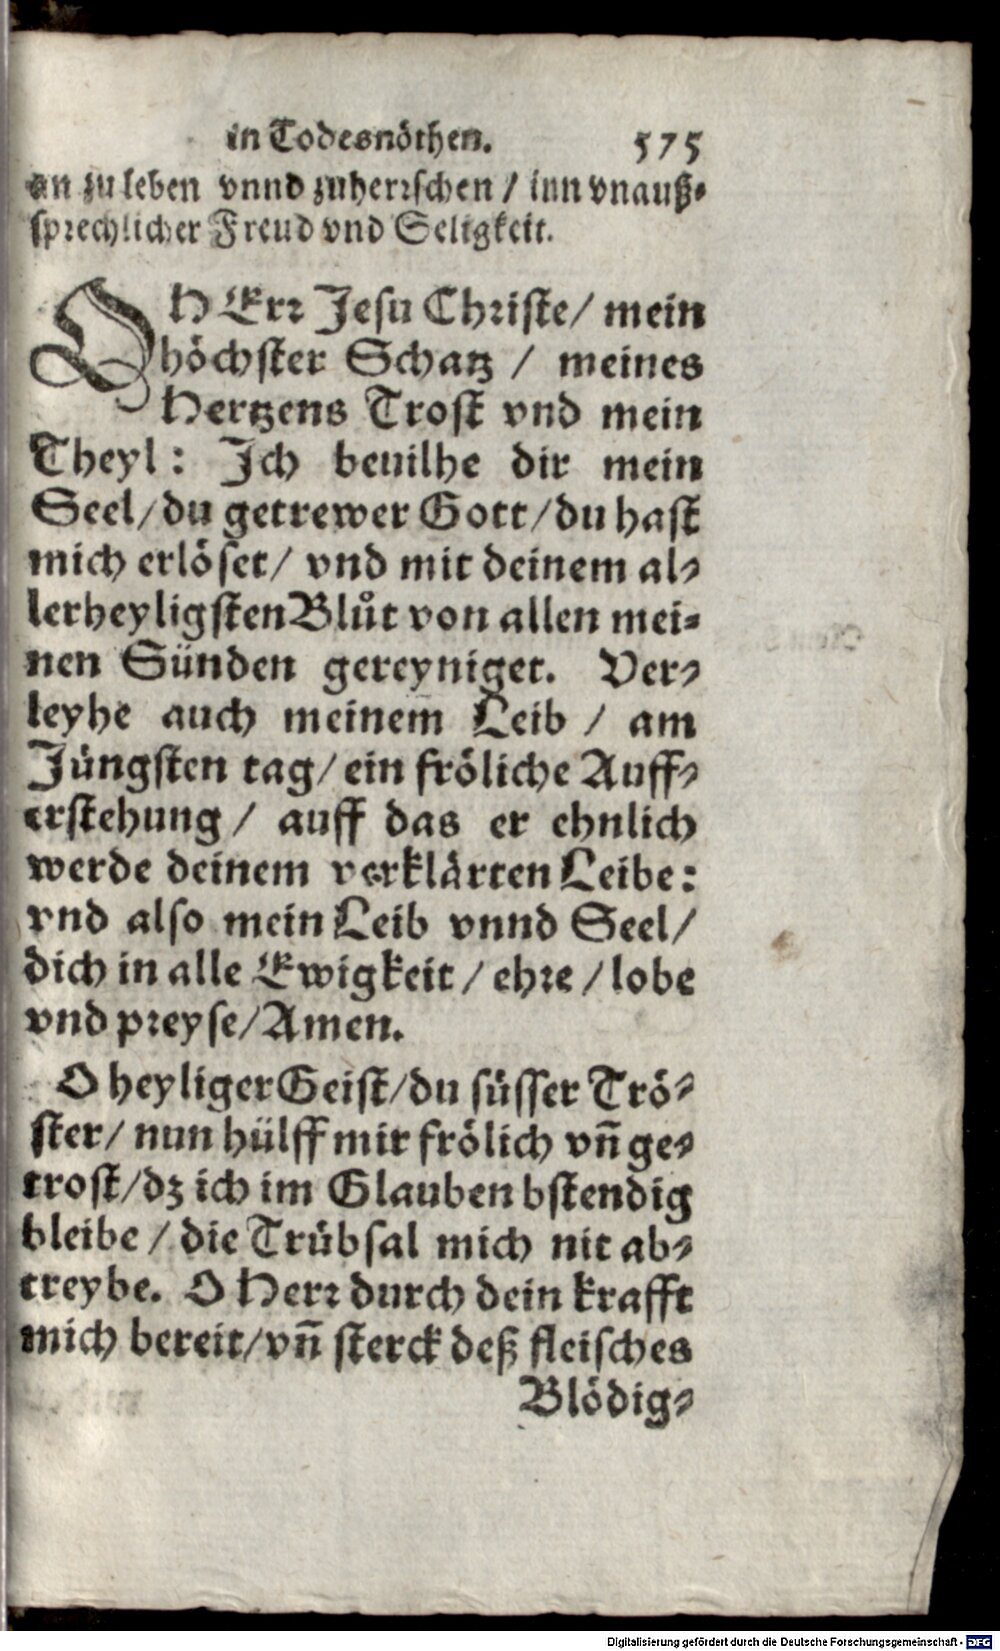 in Todesnöthen. 575
an zu leben vnnd zuherrschen / inn vnauß-
sprechlicher Freud vnd Seligkeit.
O HErr Jesu Christe / mein
höchster Schatz / meines
Hertzens Trost vnd mein
Theyl: Ich beuilhe dir mein
Seel / du getrewer Gott / du hast
mich erlöset / vnd mit deinem al-
lerheyligsten Blůt von allen mei-
nen Sünden gereyniget. Ver-
leyhe auch meinem Leib / am
Jüngsten tag / ein fröliche Auff-
erstehung / auff das er ehnlich
werde deinem verklärten Leibe:
vnd also mein Leib vnnd Seel /
dich in alle Ewigkeit / ehre / lobe
vnd preyse / Amen.
O heyliger Geist / du süsser Trö-
ster / nun hülff mir frölich vñ ge-
trost / dz ich im Glauben bstendig
bleibe / die Trübsal mich nit ab-
treybe. O Herr durch dein krafft
mich bereit / vñ sterck deß fleisches
Blödig-
Digitalisierung gefördert durch die Deutsche Forschungsgemeinschaft - DFG